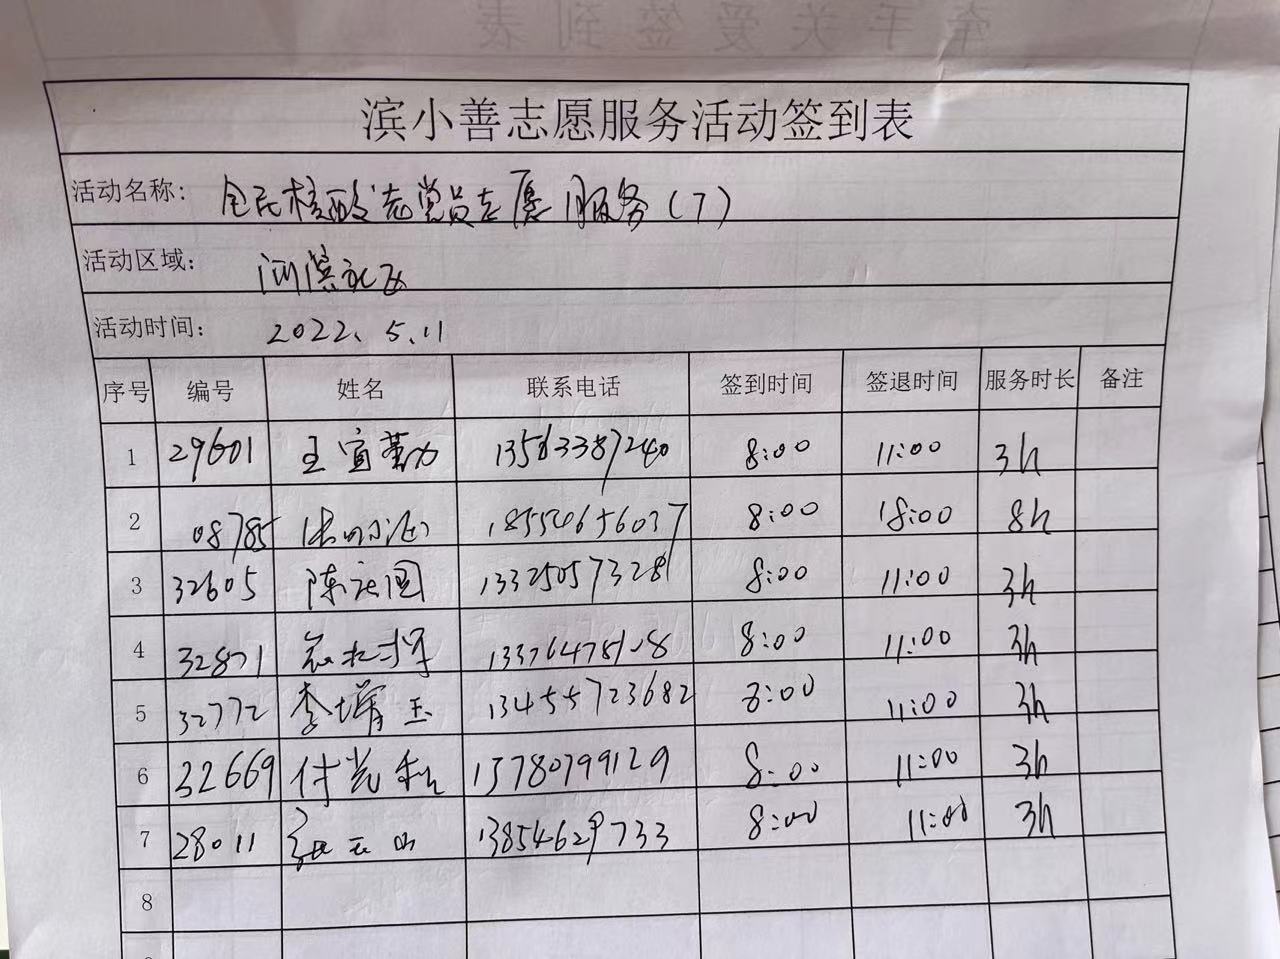 牵手关爱签到表
滨小善志愿服务活动签到表
活动名称: 全民核酸 党员志愿服务(7)
活动区域: 河滨社区
活动时间: 2022.5.11
序号 编号 姓名 联系电话 签到时间 签退时间 服务时长 备注
1 29601 王宣勤 13563387240 8:00 11:00 3h
2 08785 18554656037 8:00 18:00 8h
3 32605 陈 13325057328 8:00 11:00 3h
4 32871 8:00 11:00 3h
5 32772 李增玉 13455723682 8:00 11:00 3h
6 32669 付光 13780799129 8:00 11:00 3h
7 28011 13854629733 8:00 11:00 3h
8